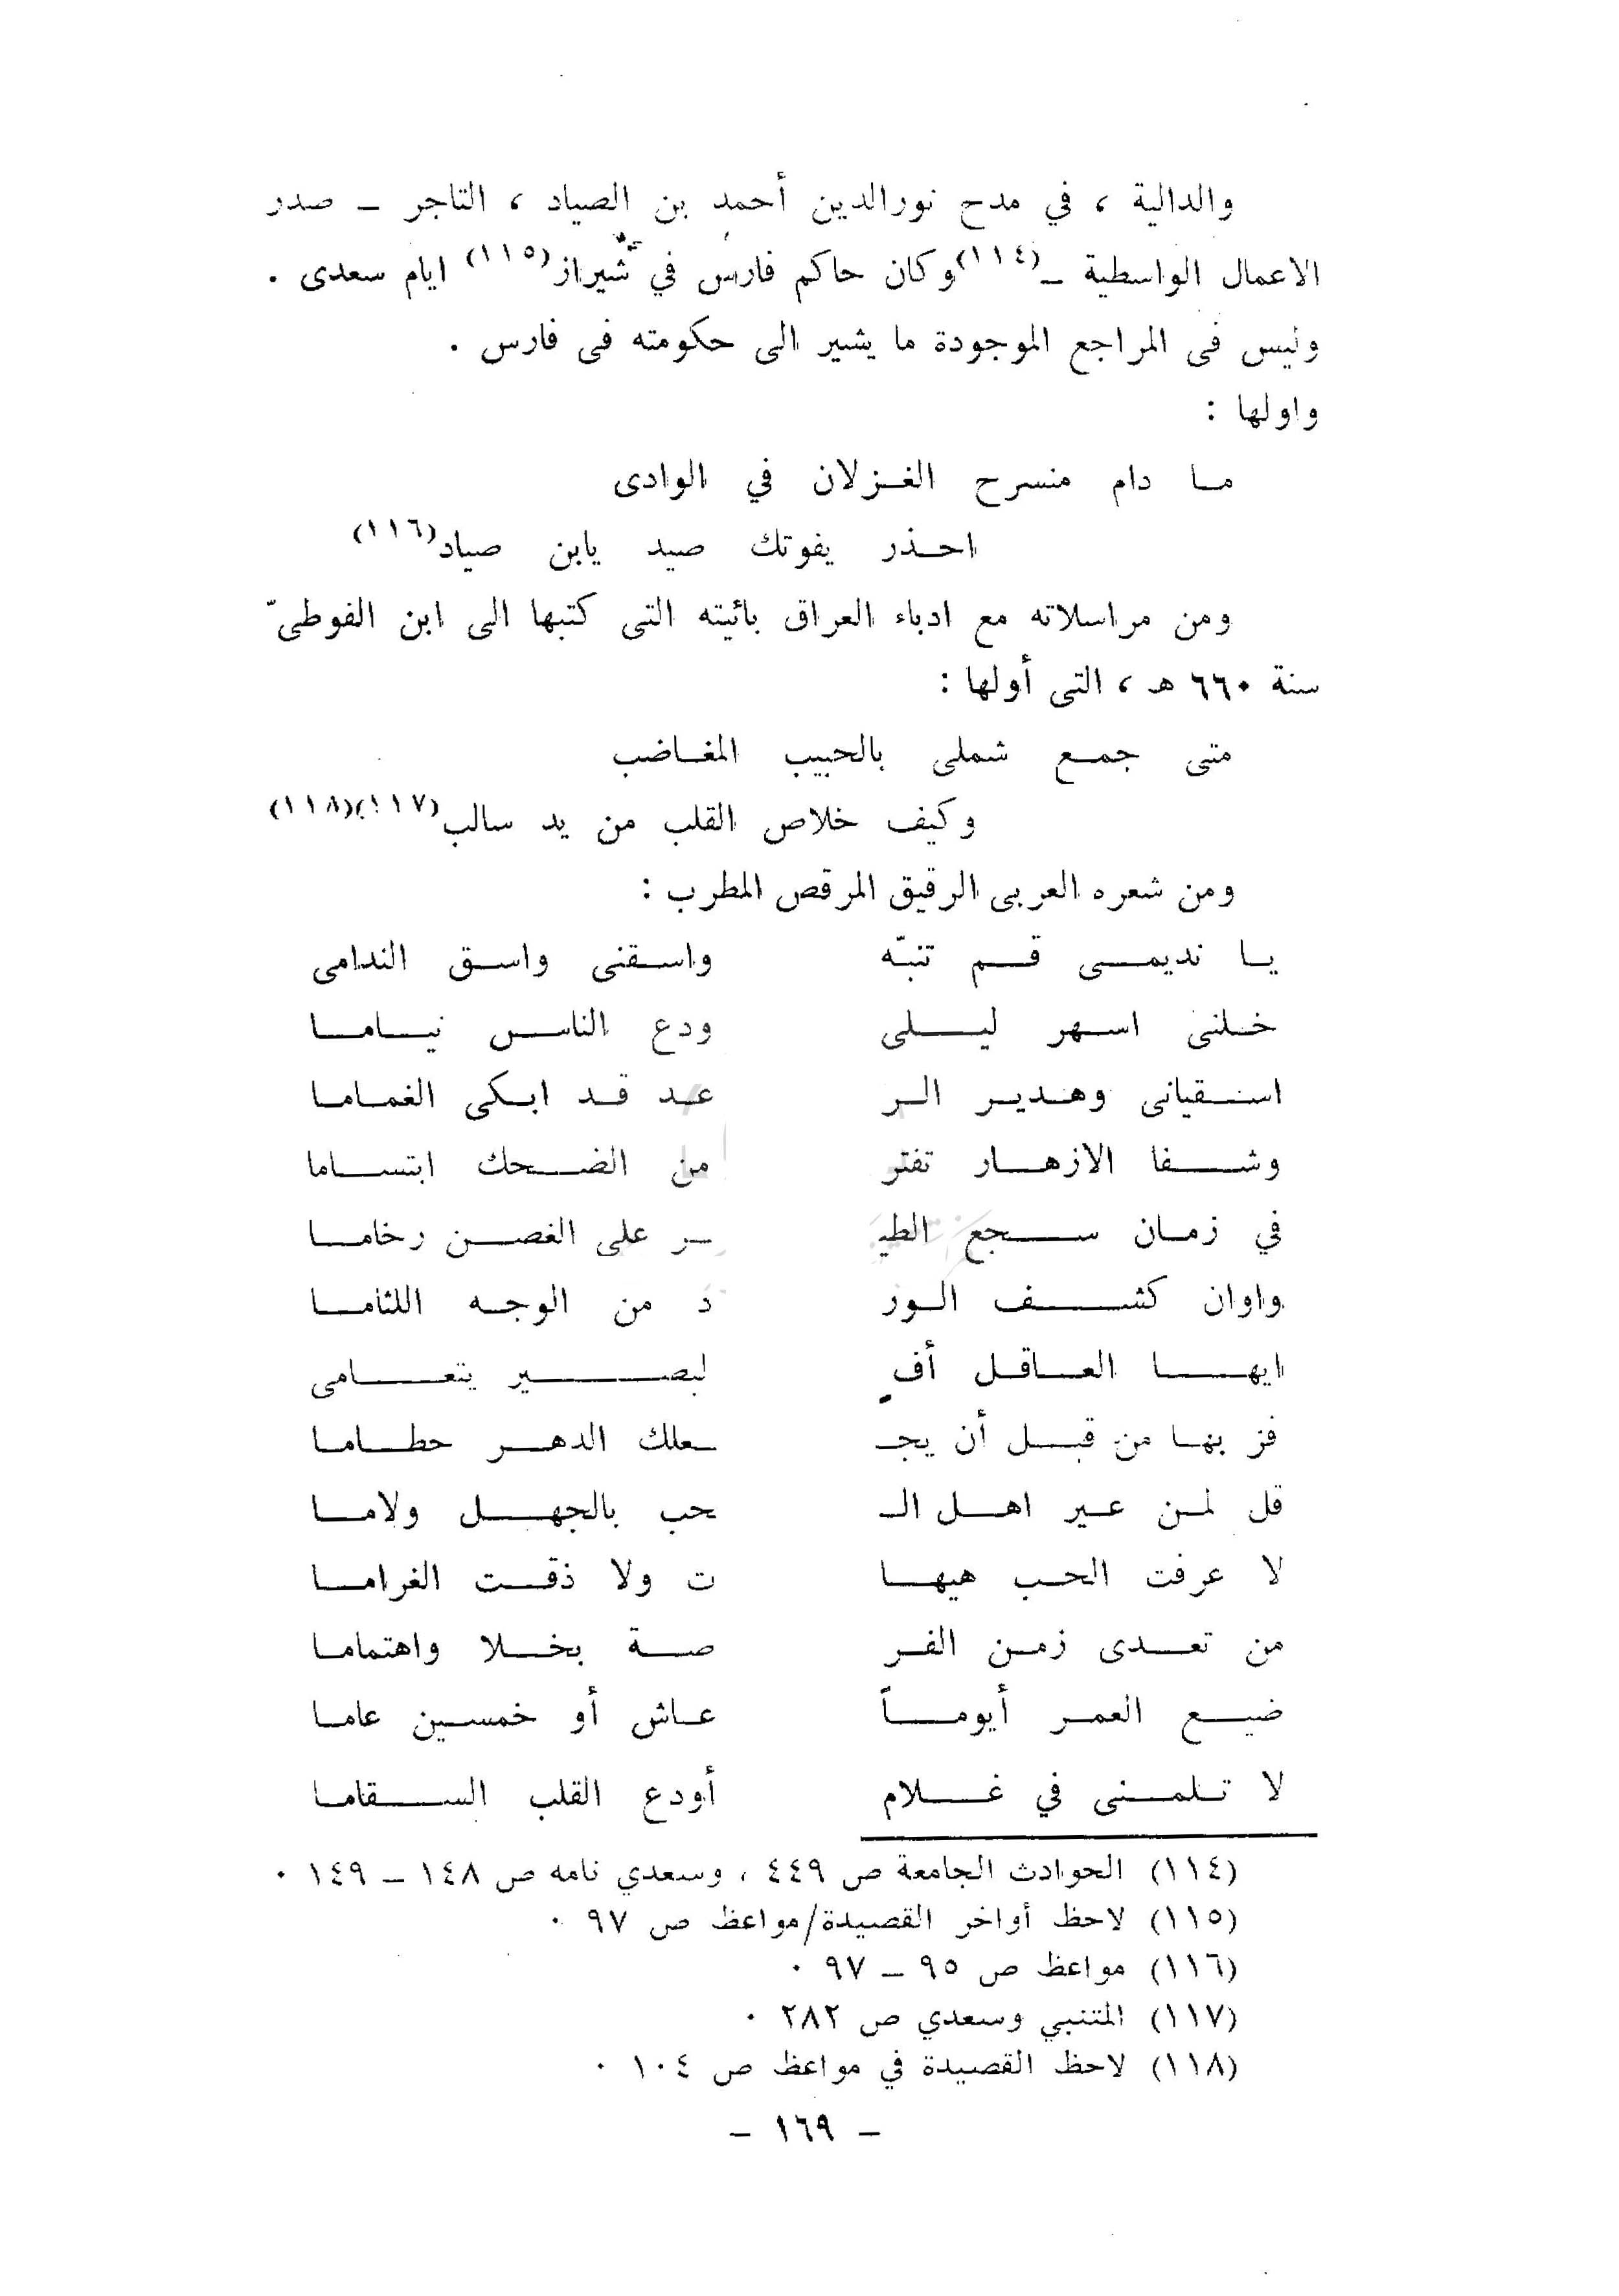 والدالية ، في مدح نورالدين أحمد بن الصياد ، التاجر ــ صدر
الاعمال الواسطية ــ(١١٤) وكان حاكم فارس في شيراز(١١٥) ايام سعدى .
وليس فى المراجع الموجودة ما يشير الى حكومته فى فارس .
واولها :
ما دام منسرح الغزلان في الوادى
احذر يفوتك صيد يابن صياد(١١٦)
ومن مراسلاته مع ادباء العراق بائيته التى كتبها الى ابن الفوطىّ
سنة ٦٦٠ هـ ، التى أولها :
متى جمع شملى بالحبيب المغاضب
وكيف خلاص القلب من يد سالب(١١٧)(١١٨)
ومن شعره العربى الرقيق المرقص المطرب :
يا نديمى قم تنبّه واسقنى واسق الندامى
خلنى اسهر ليلى ودع الناس نياما
اسقيانى وهدير الر عد قد ابكى الغماما
وشفا الازهار تفتر من الضحك ابتساما
في زمان سجع الطيـ ـر على الغصن رخاما
واوان كشف الور د من الوجه اللثاما
ايها العاقل أف لبصير يتعامى
فز بها من قبل أن يجـ ـعلك الدهر حطاما
قل لمن عير اهل الـ حب بالجهل ولاما
لا عرفت الحب هيها ت ولا ذقت الغراما
من تعدى زمن الفر صة بخلا واهتماما
ضيع العمر أيوماً عاش أو خمسين عاما
لا تلمنى في غلام أودع القلب السقاما
(١١٤) الحوادث الجامعة ص ٤٤٩ ، وسعدي نامه ص ١٤٨ ــ ١٤٩ ٠
(١١٥) لاحظ أواخر القصيدة/مواعظ ص ٩٧ ٠
(١١٦) مواعظ ص ٩٥ ــ ٩٧ ٠
(١١٧) المتنبي وسعدي ص ٢٨٢ ٠
(١١٨) لاحظ القصيدة في مواعظ ص ١٠٤ ٠
ــ ١٦٩ ــ